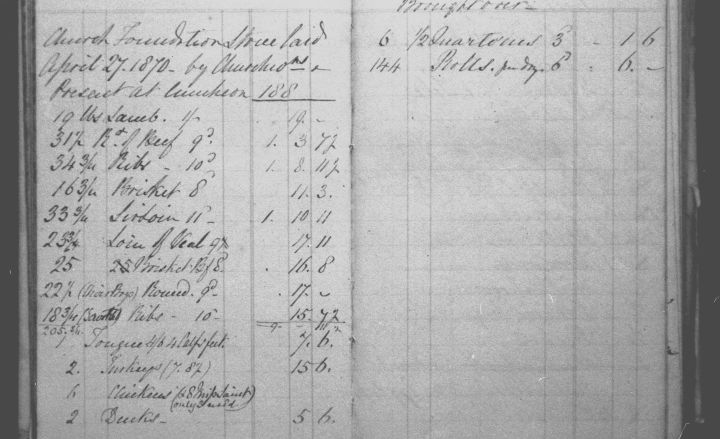 Church Foundation Stone laid
April 27. 1870 - by Churchwns
Present at luncheon 188
19 lbs Lamb. 1/- 19. -
31½ Rd. of Beef 9d. 1. 3 7½
34 3/4 Ribs - 10d 1. 8. 11½
16 3/4 Brisket 8d 11. 3.
33 3/4 Sirloin 11d - 1. 10 11
23 3/4 Loin of Veal 9½ 17. 11
25 Brisket Bf 8d. 16. 8
22½ (Choir Boys) Round. 9d. 17. -
18 3/4 Ribs - 10 - 15. 7½
205. 3/4 9. - 11½
1 Tongue 4/6 4 Calfs feet. 7. 6.
2. Turkeys (7. 8½) 15 6.
6 Chickens
2 Ducks - 5 6.
Brought over -
6 1/2 Quarterns 3d - 1. 6
144 Rolls. per doz. 6d. 6. -